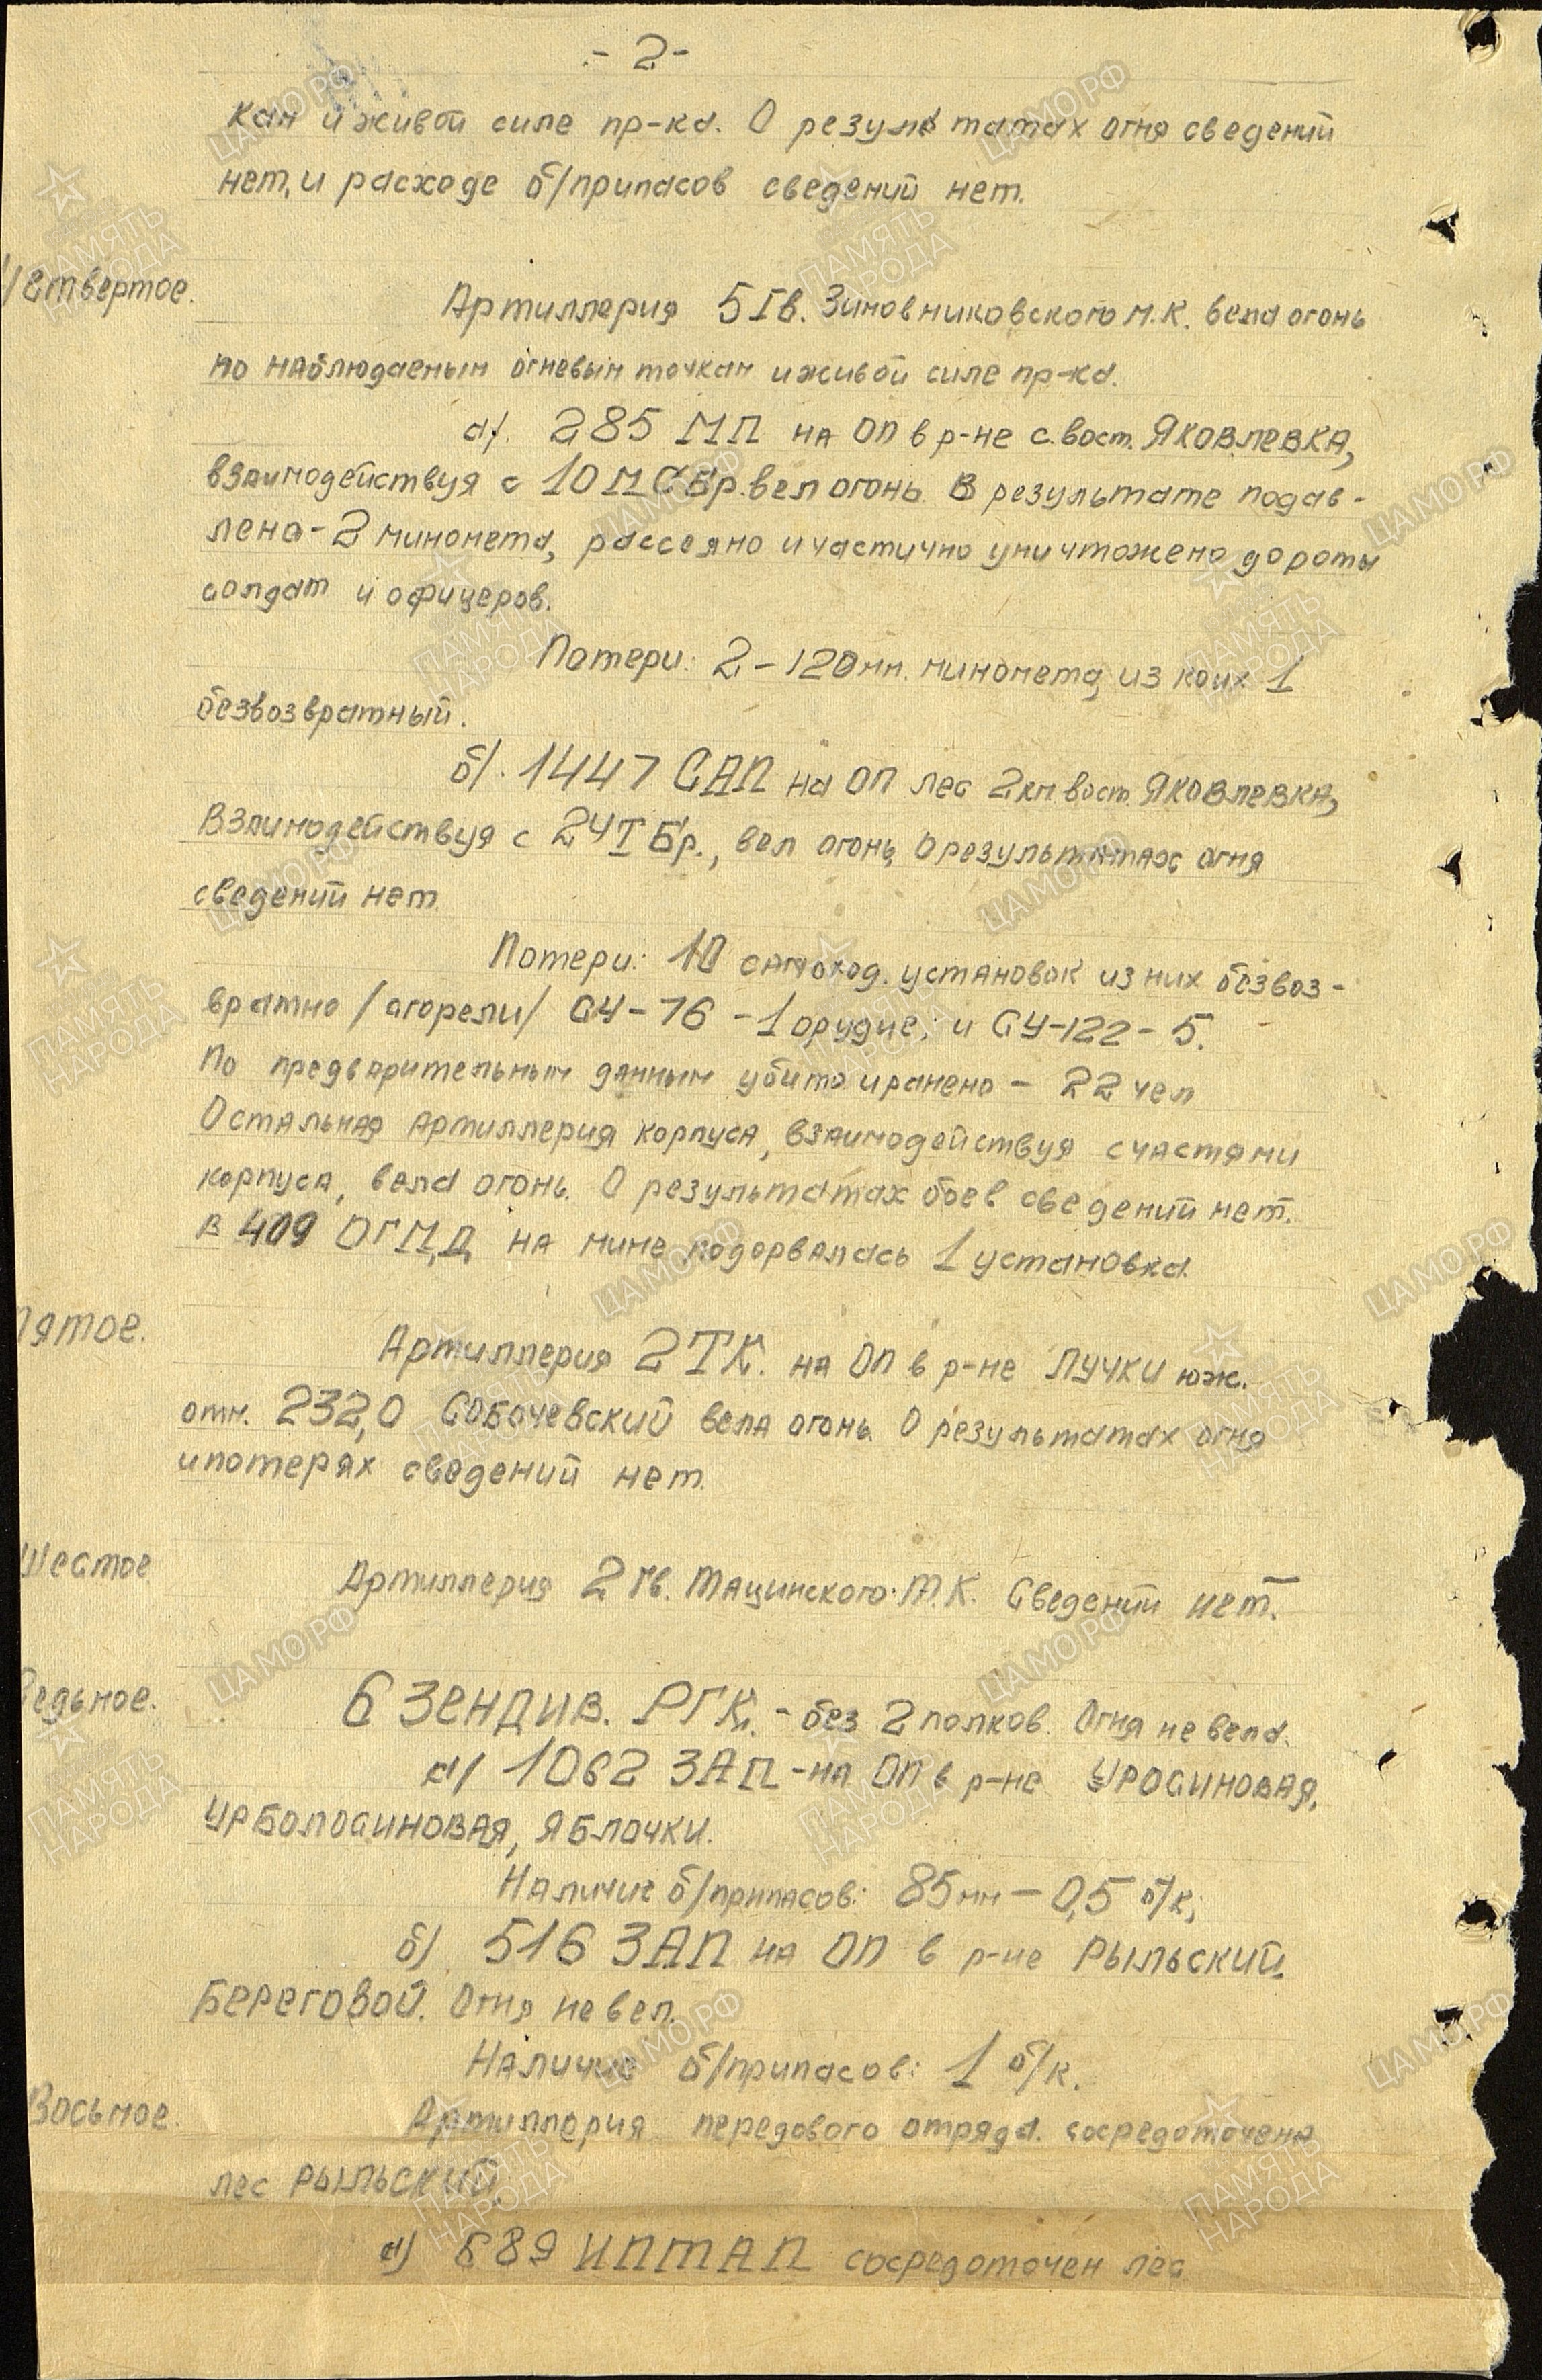 - 2 -
кам и живой силе пр-ка. О результатах огня сведений
нет, и расходе б/припасов сведений нет.
Четвертое.
Артиллерия 5 Гв. Зимовниковского м.к. вела огонь
по наблюдаемым огневым точкам и живой силе пр-ка.
а/. 285 МП на ОП в р-не с.вост. ЯКОВЛЕВКА,
взаимодействуя с 10 МСБр. вел огонь. В результате подав-
лено - 2 миномета, рассеяно и частично уничтожено до роты
солдат и офицеров.
Потери: 2 - 120 мм. миномета, из коих 1
безвозвратный.
б/. 1447 САП на ОП лес 2 км вост. ЯКОВЛЕВКА,
взаимодействуя с 24 ТБр., вел огонь, О результатах огня
сведений нет.
Потери: 10 самоход. установок из них безвоз-
вратно /сгорели/ СУ-76 - 1 орудие, и СУ-122 - 5.
По предварительным данным убито и ранено - 22 чел
Остальная артиллерия корпуса, взаимодействуя с частями
корпуса, вела огонь. О результатах боев сведений нет.
в 409 ОГМД на мине подорвалась 1 установка.
Пятое.
Артиллерия 2 ТК. на ОП в р-не ЛУЧКИ юж.
отм. 232,0 СОБАЧЕВСКИЙ вела огонь. О результатах огня
и потерях сведений нет.
Шестое
Артиллерия 2 Гв. Тацинского Т.К. Сведений нет.
Седьмое.
6 ЗЕНДИВ. РГК. - без 2 полков. Огня не вела.
а/ 1062 ЗАП - на ОП в р-не УР ОСИНОВАЯ,
УР БОЛОСИНОВАЯ, ЯБЛОЧКИ.
Наличие б/припасов: 85 мм - 0,5 б/к;
б/ 516 ЗАП на ОП в р-не РЫЛЬСКИЙ,
БЕРЕГОВОЙ. Огня не вел.
Наличие б/припасов: 1 б/к.
Восьмое.
Артиллерия передового отряда. сосредоточена
лес РЫЛЬСКИЙ.
а/ 689 ИПТАП сосредоточен лес
ЦАМО РФ
ПАМЯТЬ НАРОДА